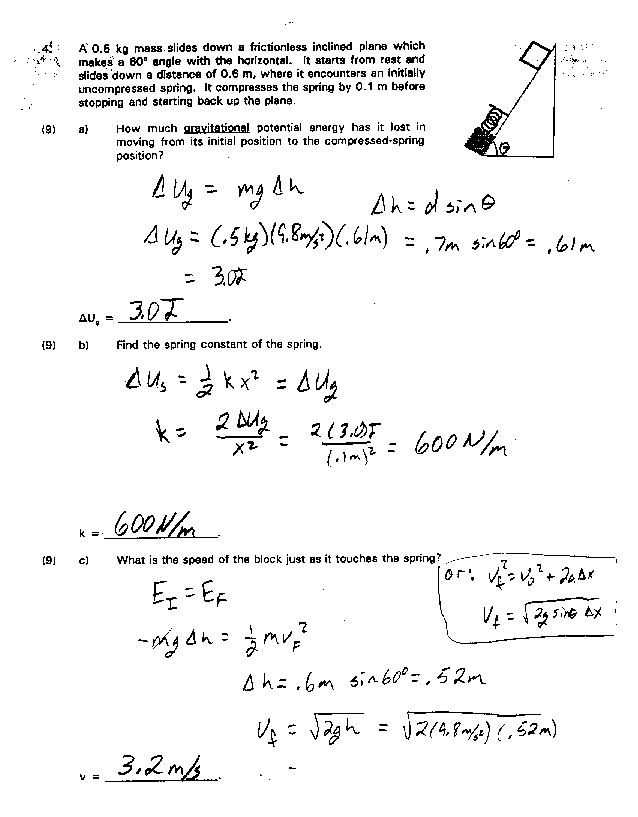 4. A 0.5 kg mass slides down a frictionless inclined plane which
makes a 60° angle with the horizontal. It starts from rest and
slides down a distance of 0.6 m, where it encounters an initially
uncompressed spring. It compresses the spring by 0.1 m before
stopping and starting back up the plane.
θ
(9) a) How much gravitational potential energy has it lost in
moving from its initial position to the compressed-spring
position?
ΔUg = mgΔh
Δh = d sinθ
ΔUg = (.5kg)(9.8m/s²)(.61m) = .7m sin60° = .61m
= 3.0J
ΔUg = 3.0J.
(9) b) Find the spring constant of the spring.
ΔUs = 1/2 kx² = ΔUg
k = 2ΔUg/x² = 2(3.0)J/(.1m)² = 600 N/m
k = 600 N/m.
(9) c) What is the speed of the block just as it touches the spring?
or: Vf² = V₀² + 2aΔx
Vf = √2g sinθ Δx
EI = EF
-mgΔh = 1/2 mVF²
Δh = .6m sin60° = .52m
Vf = √2gh = √2(9.8m/s²)(.52m)
v = 3.2 m/s.